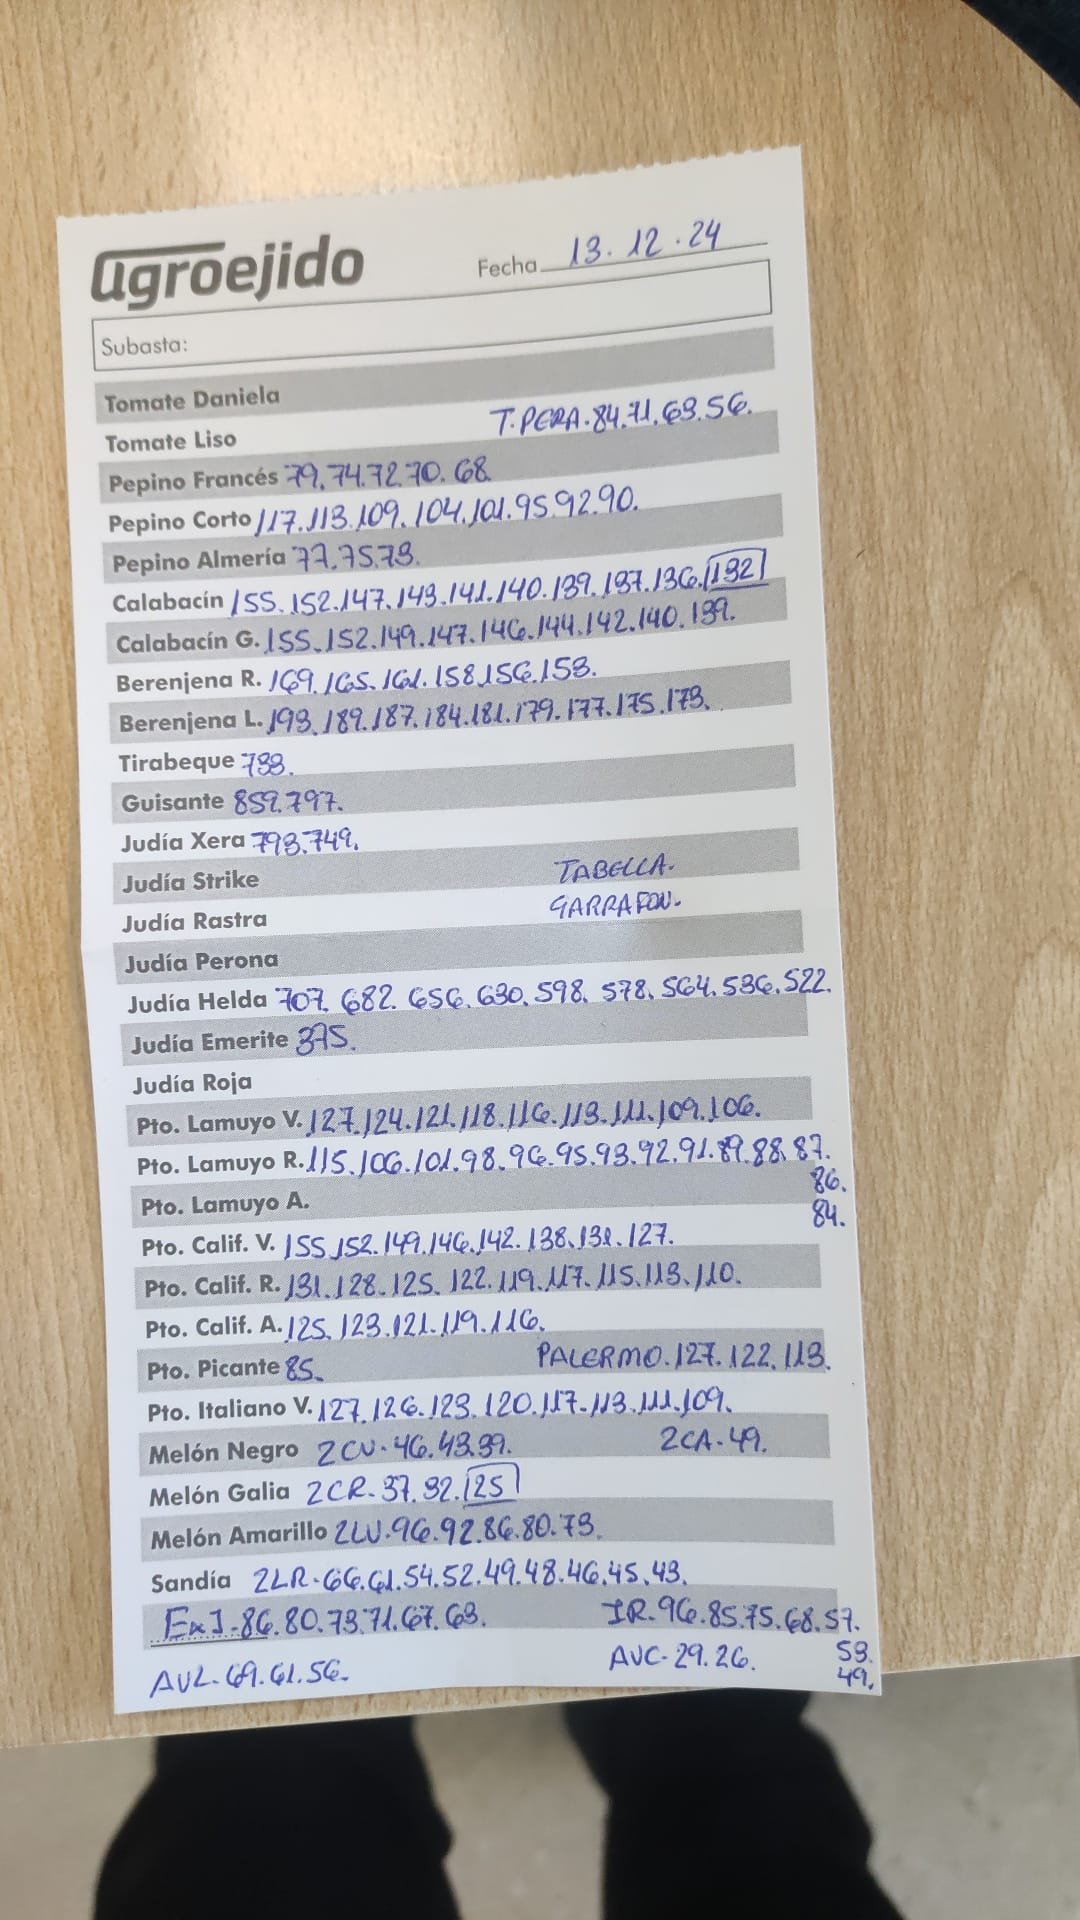 agroejido Fecha 13.12.24
Subasta:
Tomate Daniela
Tomate Liso T.PERA.84.71.63.56.
Pepino Francés 79.74.72.70.68.
Pepino Corto 117.113.109.104.101.95.92.90.
Pepino Almería 77.75.73.
Calabacín 155.152.147.143.141.140.139.137.136.132
Calabacín G. 155.152.149.147.146.144.142.140.139.
Berenjena R. 169.165.161.158.156.153.
Berenjena L. 193.189.187.184.181.179.177.175.173.
Tirabeque 733.
Guisante 859.797.
Judía Xera 793.749.
Judía Strike TABELLA.
Judía Rastra GARRAFON.
Judía Perona
Judía Helda 707.682.656.630.598.578.564.536.522.
Judía Emerite 375.
Judía Roja
Pto. Lamuyo V. 127.124.121.118.116.113.111.109.106.
Pto. Lamuyo R. 115.106.101.98.96.95.93.92.91.89.88.87.
86.
Pto. Lamuyo A. 84.
Pto. Calif. V. 155.152.149.146.142.138.131.127.
Pto. Calif. R. 131.128.125.122.119.117.115.113.110.
Pto. Calif. A. 125.123.121.119.116.
Pto. Picante 85. PALERMO.127.122.113.
Pto. Italiano V. 127.126.123.120.117.113.111.109.
Melón Negro 2CV.46.43.39. 2CA.49.
Melón Galia 2CR.37.32.25
Melón Amarillo 2LV.96.92.86.80.73.
Sandía 2LR.66.61.54.52.49.48.46.45.43.
ExJ.86.80.73.71.67.63. IR.96.85.75.68.57.
53.
AVL.69.61.56. AVC.29.26. 49.